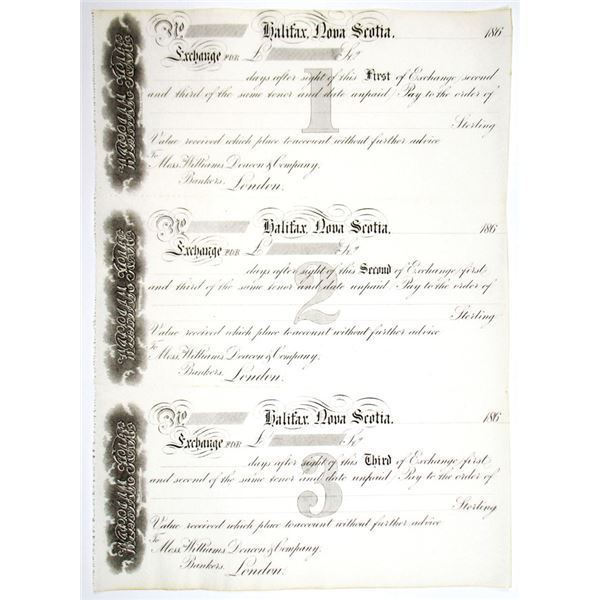 No. Halifax, Nova Scotia. 186
Exchange FOR £ Stg.
days after sight of this First of Exchange second
and third of the same tenor and date unpaid Pay to the order of
1
Sterling
Value received which place to account without further advice
To Mess. Williams Deacon & Company,
Bankers, London.
No. Halifax, Nova Scotia. 186
Exchange FOR £ Stg.
days after sight of this Second of Exchange first
and third of the same tenor and date unpaid Pay to the order of
2
Sterling
Value received which place to account without further advice
To Mess. Williams Deacon & Company,
Bankers, London.
No. Halifax, Nova Scotia. 186
Exchange FOR £ Stg.
days after sight of this Third of Exchange first
and second of the same tenor and date unpaid Pay to the order of
3
Sterling
Value received which place to account without further advice
To Mess. Williams Deacon & Company,
Bankers, London.